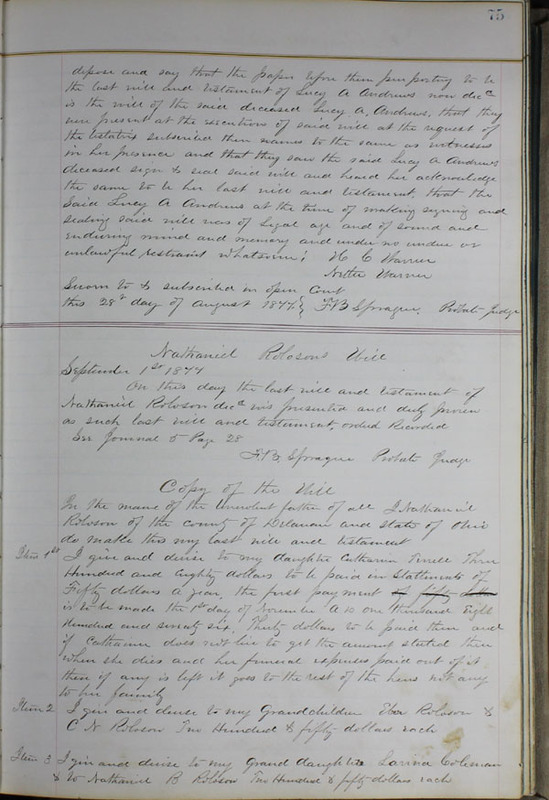 75
depose and say that the paper before them purporting to be
the last will and testament of Lucy A Andrews now decd
is the will of the said deceased Lucy A. Andrews, that they
were present at the execution of said will at the request of
the testatrix subscribed their names to the same as witnesses
in her presence and that they saw the said Lucy A Andrews
deceased sign & seal said will and heard her acknowledge
the same to be her last will and testament. that the
Said Lucy A Andrews at the time of making signing and
sealing said will was of legal age and of sound and
enduring mind and memory and under no undue or
unlawful restraint whatsoever. H C Warner
Warner
Sworn to & subscribed in open Court
this 28th day of August 1877 } F.B. Sprague, Probate Judge
Nathaniel Robosons Will
September 1st 1877
On this day the last will and testament of
Nathaniel Roloson decd was presented and duly proven
as such last will and testament, orded Recorded
See Journal 5 Page 28
F.B. Sprague Probate Judge
Copy of the Will
In the name of the Benevolent father of all I Nathaniel
Roloson of the County of Delaware and State of Ohio
do make this my last will and testament
Item 1st I give and devise to my daughter Catharine Terrell Three
Hundred and Eighty dollars to be paid in Statements of
Fifty dollars a year, the first payment of fifty dollars
is to be made the 1st day of November A D one thousand Eight
Hundred and seventy six. Thirty dollars to be paid then and
if Catharine does not live to get the amount stated then
when she dies and her funeral expenses paid out of it
then if any is left it goes to the rest of the heirs not any
to her family
Item 2 I give and devise to my Grandchildren Roloson &
C N Roloson Two Hundred & fifty dollars each
Item 3 I give and devise to my Grand daughter Lavina Coleman
& to Nathaniel B Roloson Two Hundred & fifty dollars each